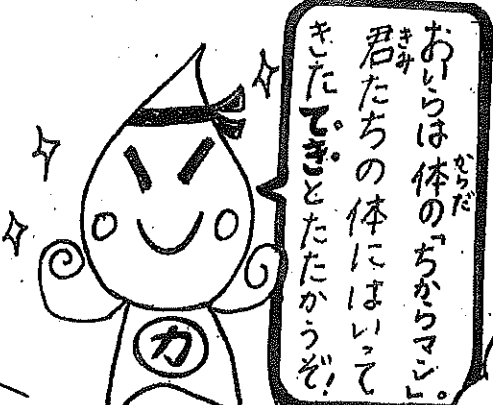 おいらは体の「ちからマン」。
君たちの体にはいって
きたてきとたたかうぞ!
力